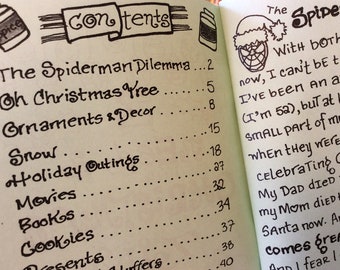 Contents
The Spiderman Dilemma .. 2
Oh Christmas Tree .... 5
Ornaments & Decor .... 8
Snow ............ 15
Holiday Outings ...... 18
Movies ............ 27
Books ............ 32
Cookies ........... 34
Presents ........... 37
Stuffers ..... 38
40
The Spide
With both
now, I can't be t
I've been an a
(I'm 52), but at l
small part of m
when they were
celebrating C
My Dad died
my Mom died t
Santa now. An
comes grea
And I fear I